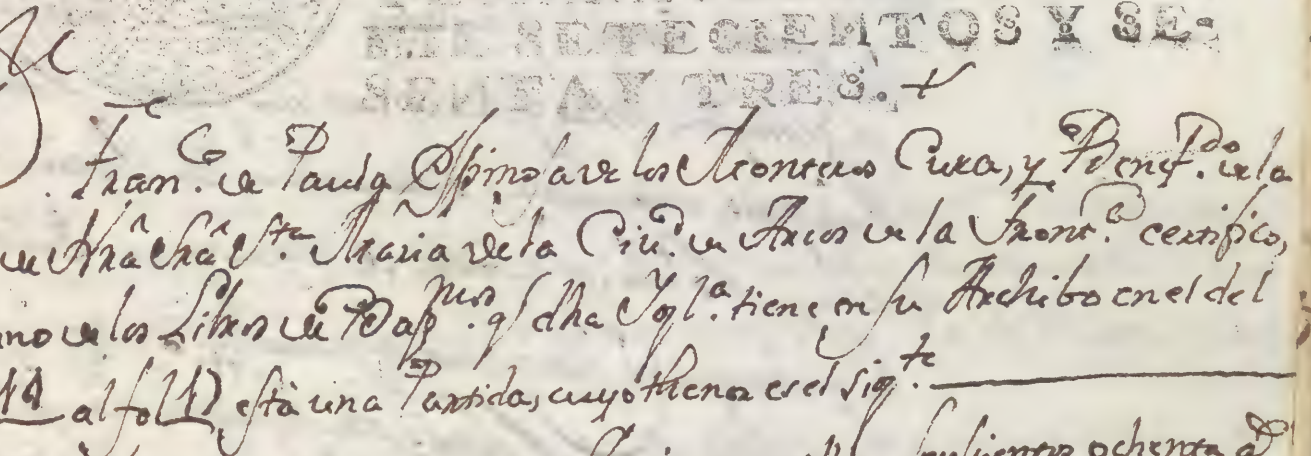 MIL SETECIENTOS Y SE-
SENTAY TRES.
Fran.co de Paula Espinosa de los Monteros Cura, y Benef.do de la
de Nrâ Srâ S.ta Maria de la Ciu.d de Arcos de la Front.a certifico,
uno de los Libros de Bap.mos q.e dha Ygl.a tiene en su Archibo en el del
al fol 17 està una Partida, cuyo thenor es el sig.te
ochenta a.s